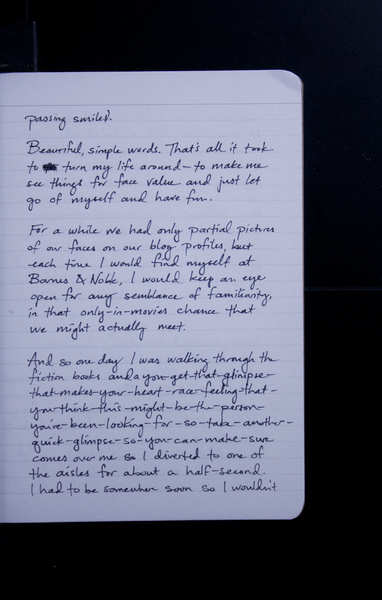 passing smiles!.
Beautiful, simple words. That's all it took
to turn my life around – to make me
see things for face value and just let
go of myself and have fun..
For a while we had only partial pictures
of our faces on our blog profiles, but
each time I would find myself at
Barnes & Noble, I would keep an eye
open for any semblance of familiarity,
in that only-in-movies chance that
we might actually meet.
And so one day I was walking through the
fiction books and a you-get-that-glimpse-
that-makes-your-heart-race-feeling-that-
you-think-this-might-be-the-person-
you've-been-looking-for-so-take-another-
quick-glimpse-so-you-can-make-sure
comes over me so I diverted to one of
the aisles for about a half-second.
I had to be somewhere soon so I wouldn't